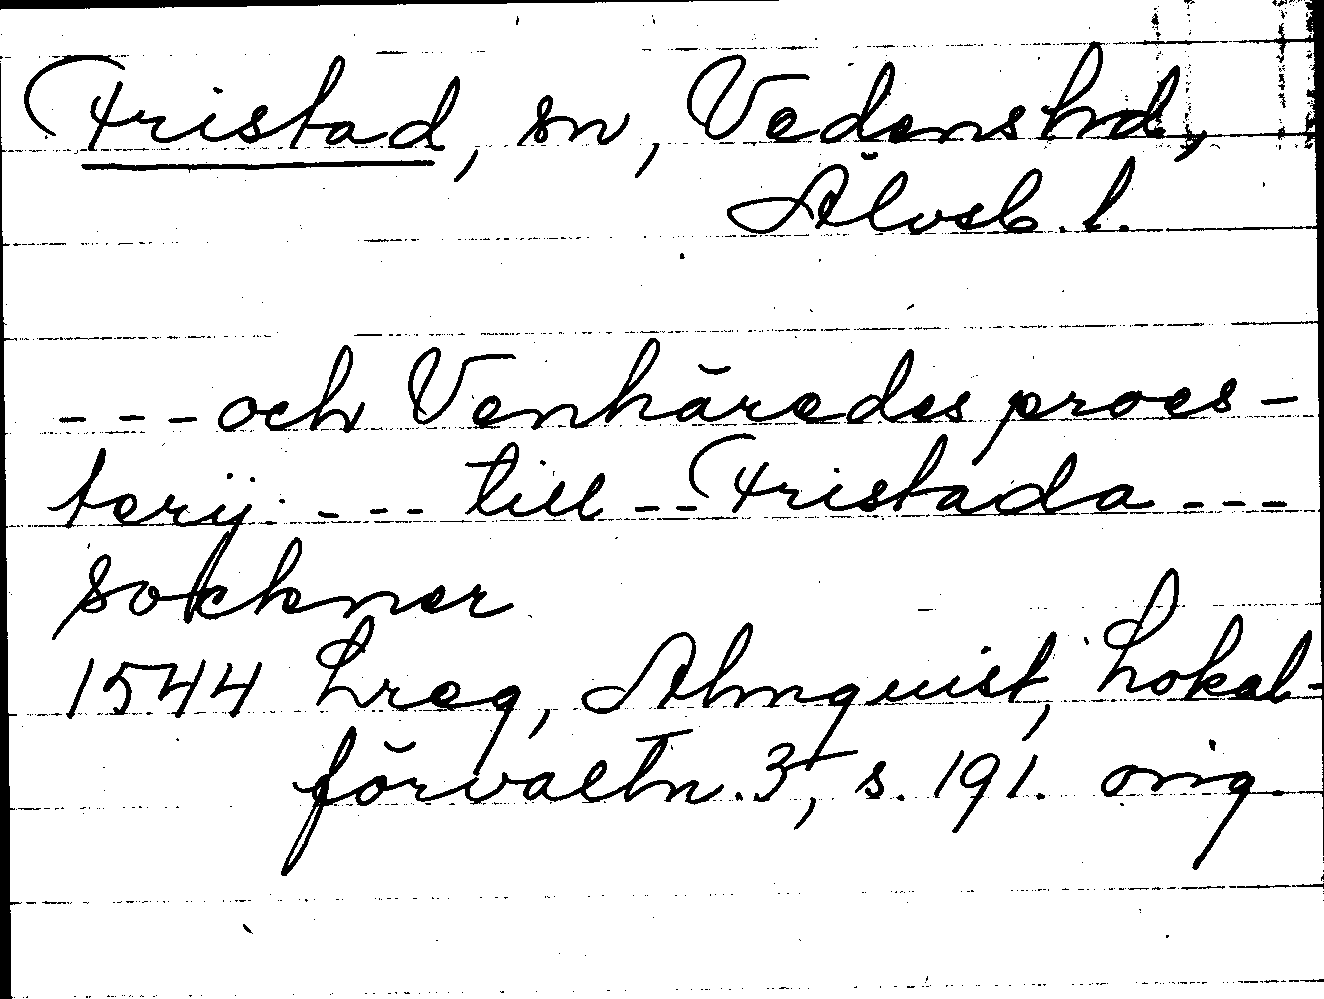 Fristad, sn, Vedens hd,
Älvsb. l.
--- och Venhäredes proes-
terij --- till -- Fristada ---
sockner
1544 Lreg, Almquist, Lokal-
förvaltn. 3, s. 191. orig.